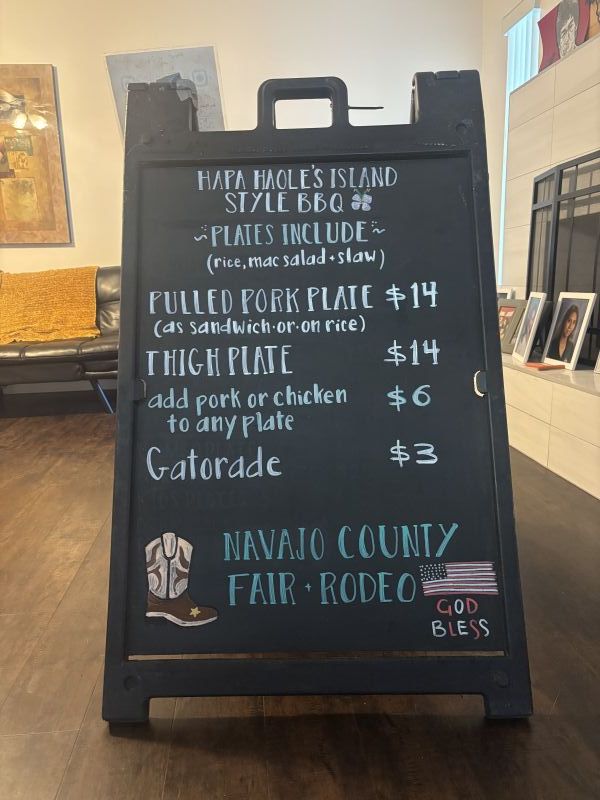 HAPA HAOLE'S ISLAND
STYLE BBQ
~PLATES INCLUDE~
(rice, mac salad + slaw)
PULLED PORK PLATE $14
(as sandwich-or-on rice)
THIGH PLATE $14
add pork or chicken $6
to any plate
Gatorade $3
NAVAJO COUNTY
FAIR + RODEO
GOD
BLESS